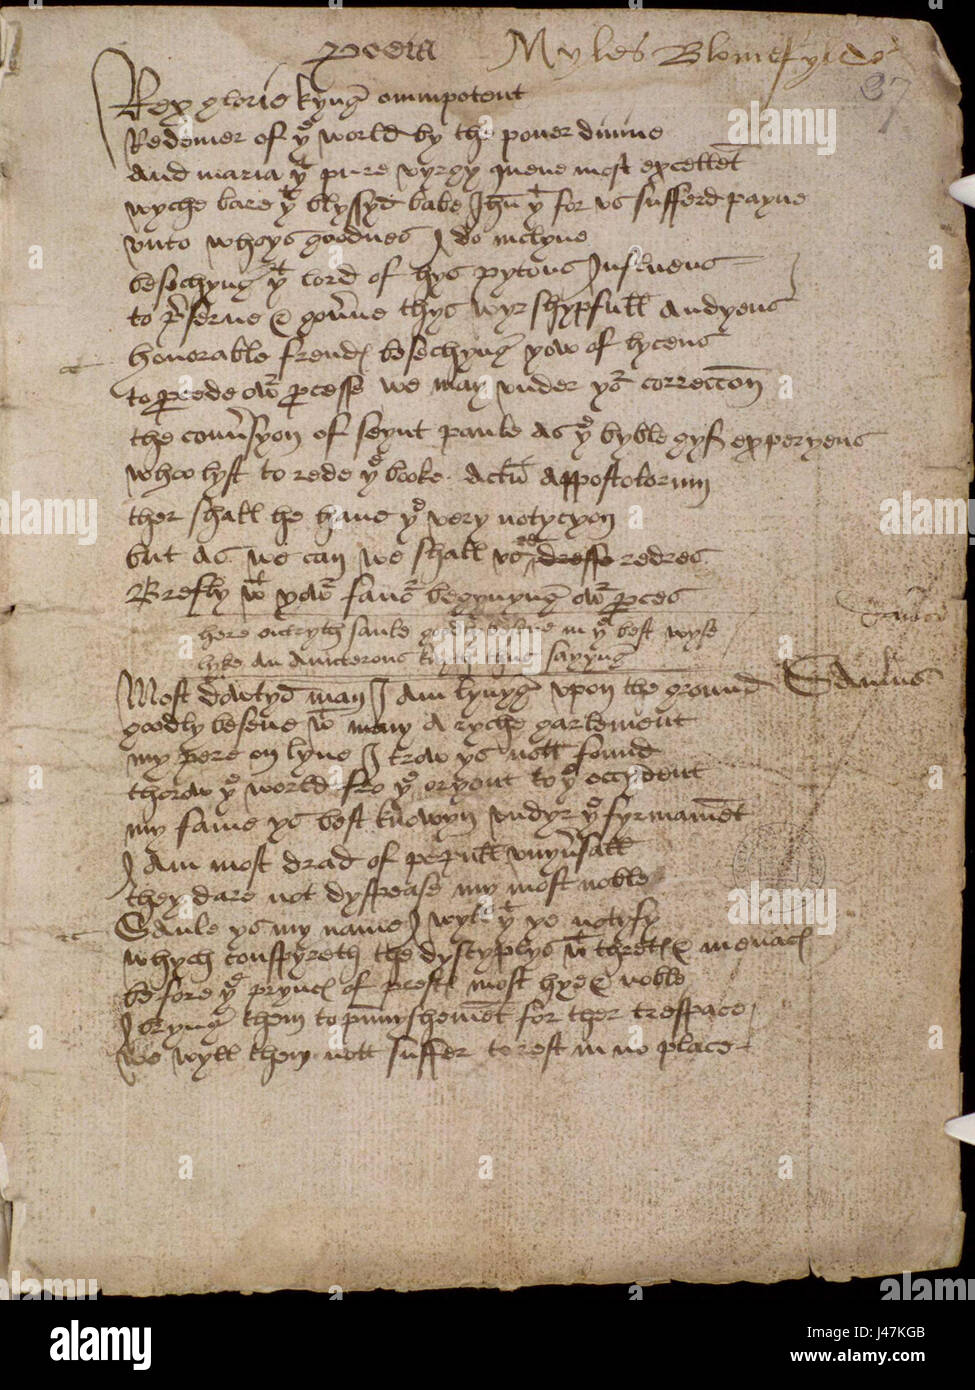 Poeta Myles Blomefylde
37
Rex glorie kyng omnipotent
Redemer of yᵉ world by the pouer diuine
And maria yᵗ pure vyrgy quene most excellēt
wyche bare yᵗ blyssyd babe Jhū yᵗ for vs sufferd payne
vnto whoys goodnes I do inclyne
besechyng yᵗ lord of hys pytous Influens
to p̄serue & gou̅ne thys wyrshypfull Audyens
honorable frendꝭ besechyng yow of lycens
to ꝓcede owʳ ꝓcesse we may vnder yoʳ correccōn
the conu̅syon of seynt paule as yᵉ byble gyf experyens
whoo lyst to rede yᵉ booke Actū Appostolorum
ther shall he haue yᵉ very notycyon
but as we can we shall vs redres
Brefly wᵗ yowʳ fauoʳ begynyng owʳ ꝓces
here entryth saule goodly besene in yᵉ best wyse
lyke an aunterous knyth thus sayyng
Most dowtyd man I am lyuyng vpon the ground Saulus
goodly besene wᵗ many a ryche garlement
my pere on lyue I trow ys nott found
thorow yᵉ world fro yᵉ oryent to yᵉ occydent
my fame ys best knowyn vndyr yᵉ fyrmamēt
I am most drad of pepull vnyu̅sall
they dare not dysplease my most noble
Saule ys my name I wyll yᵗ ye notyfy
whych conspyreth the dyscyplys wᵗ thretꝭ & menacꝭ
be fore yᵉ pryncꝭ of prestꝭ most hye & noble
I bryng them to punyshemēt for ther trespace
we wyll them nott suffer to rest in no place
a alamy stock photo
J47KGB
www.alamy.com